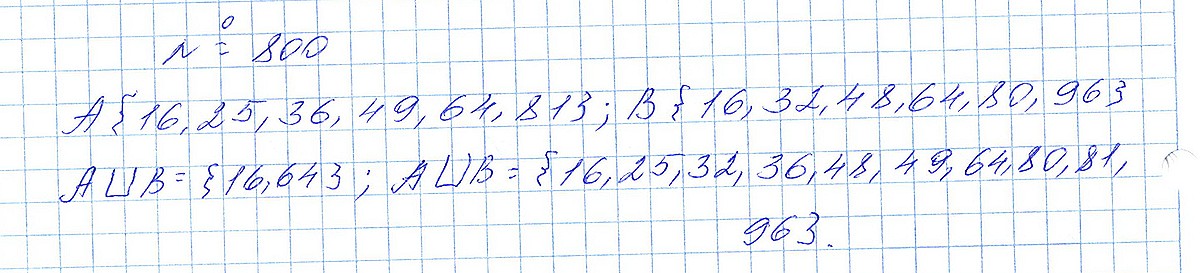 № 800
A {16, 25, 36, 49, 64, 81}; B {16, 32, 48, 64, 80, 96}
A ⊔ B = {16, 64}; A ⊔ B = {16, 25, 32, 36, 48, 49, 64, 80, 81,
96}.